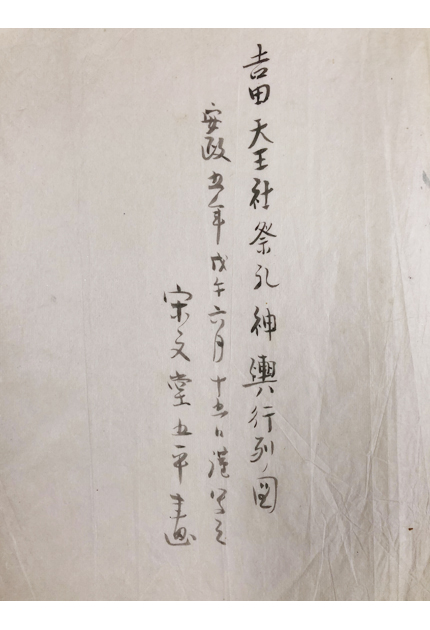 吉田天王社祭礼神輿行列ノ図
安政五年戊午六月十五日謹写之
宋文堂五平画